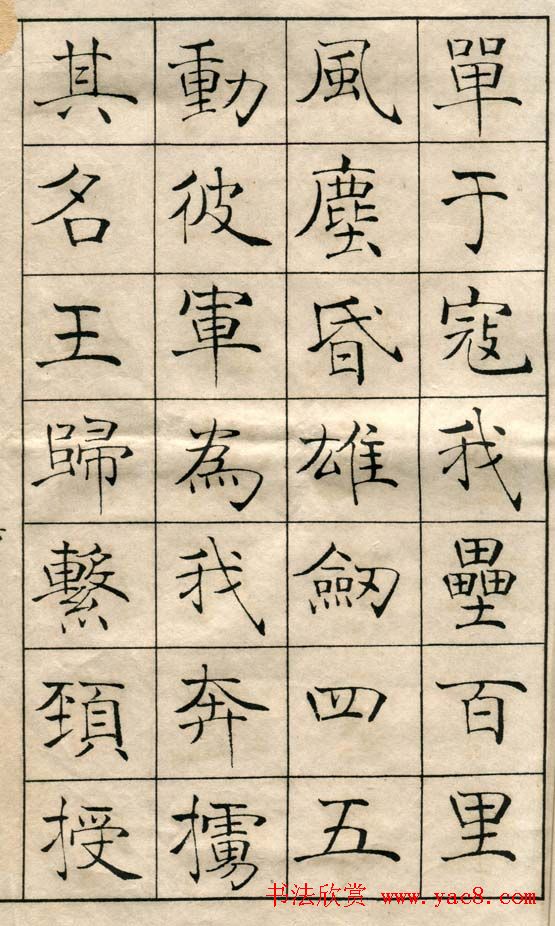 單于寇我壘百里
風塵昏雄劒四五
動彼軍為我奔擄
其名王歸繫頸授
书法欣赏 www.yac8.com